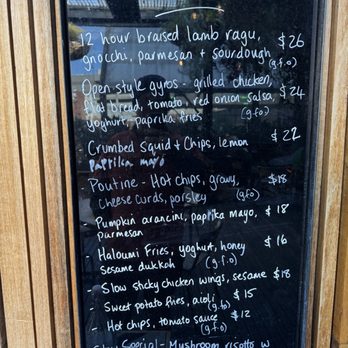 12 hour braised lamb ragu, $26
gnocchi, parmesan + sourdough
(g.f.o)
Open style gyros - grilled chicken,
flat bread, tomato, red onion salsa, $24
yoghurt, paprika fries (g.f.o)
- Crumbed Squid + Chips, lemon $22
paprika mayo
- Poutine - Hot chips, gravy, $18
cheese curds, parsley (gfo)
- Pumpkin arancini, paprika mayo, $18
Parmesan
- Haloumi Fries, yoghurt, honey $16
Sesame dukkah (g.f.o)
- Slow sticky chicken wings, sesame $18
- Sweet potato fries, aioli $15
(g.fo)
- Hot chips, tomato sauce $12
(g.f.o)
Special - Mushroom risotto w